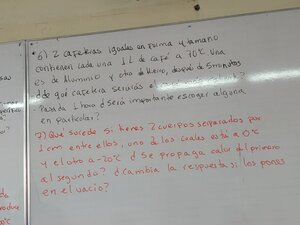 6) 2 cafeteras iguales en forma y tamaño
contienen cada una 1 L de café a 70°C. Una
es de Aluminio y otra de Hierro, después de 5 minutos
¿de qué cafetera servirás el
Pasada 1 hora ¿será importante escoger alguna
en particular?
7) Qué sucede si tienes 2 cuerpos separados por
1 cm entre ellos, uno de los cuales está a 0°C
y el otro a -20°C ¿Se propaga calor del primero
al segundo? ¿Cambia la respuesta si los pones
en el vacío?